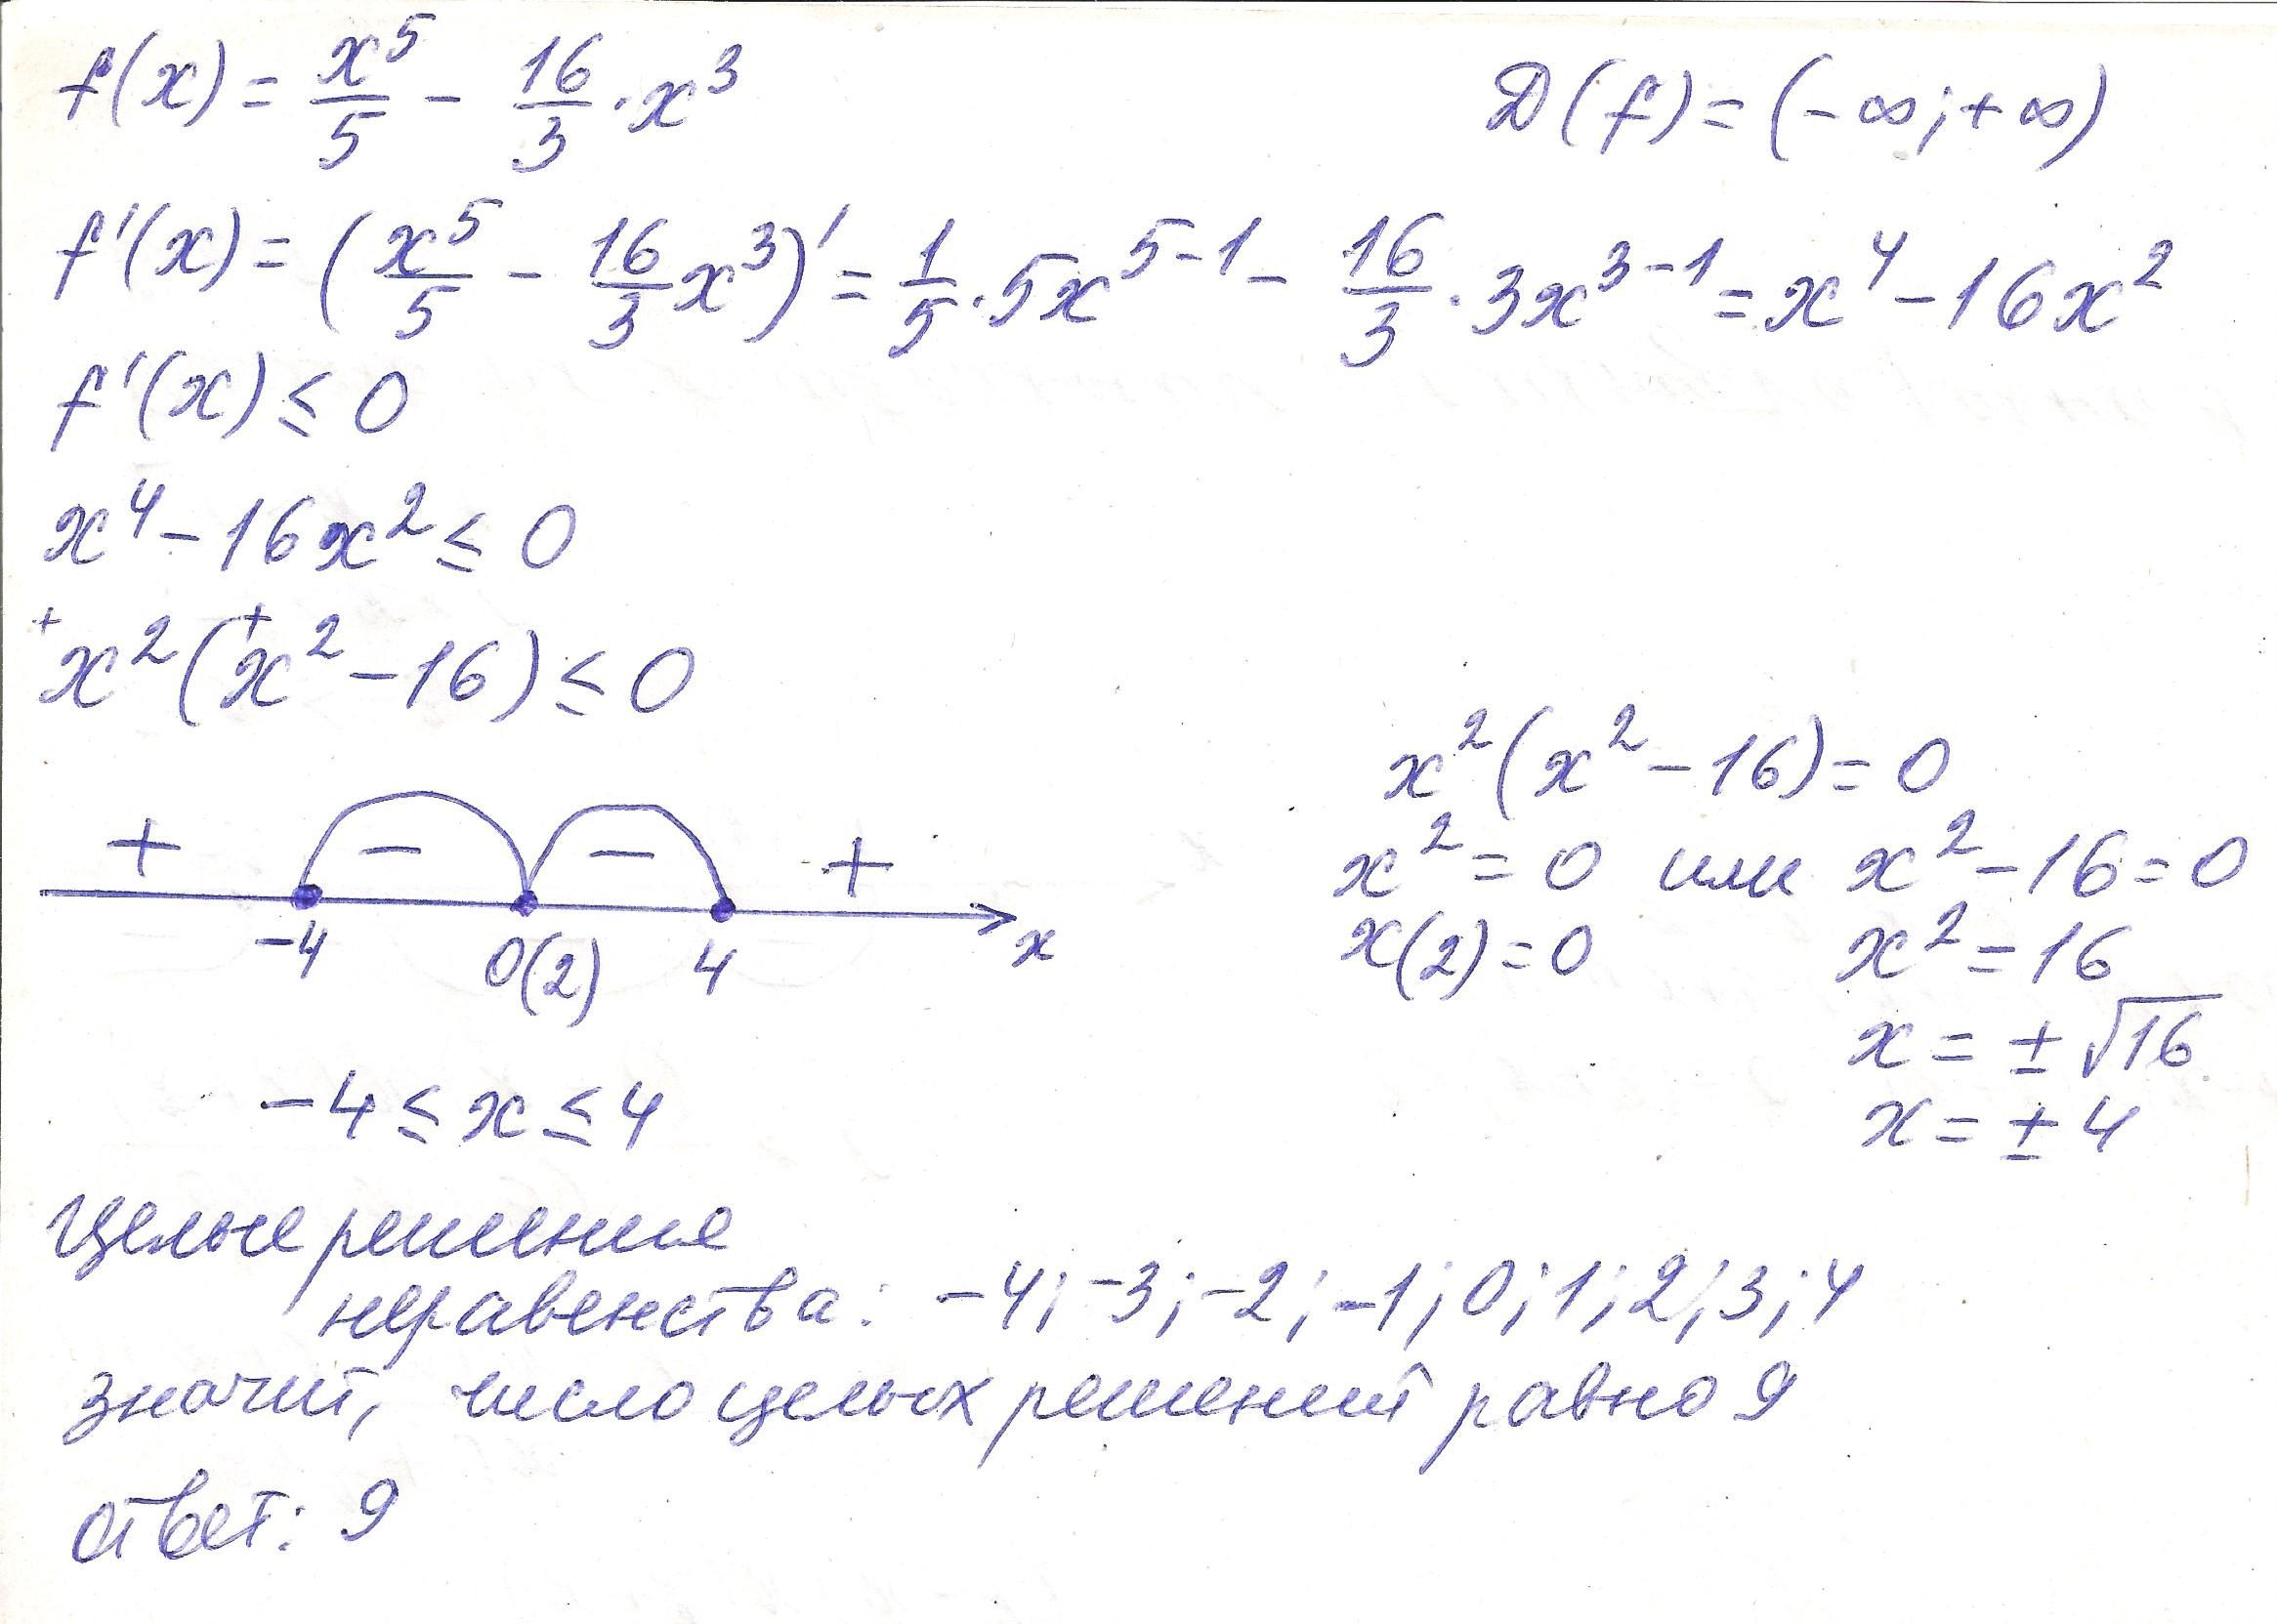 f(x) = x⁵/5 - 16/3 · x³
D(f) = (-∞; +∞)
f'(x) = (x⁵/5 - 16/3 x³)' = 1/5 · 5x⁵⁻¹ - 16/3 · 3x³⁻¹ = x⁴ - 16x²
f'(x) ≤ 0
x⁴ - 16x² ≤ 0
+ +
x²(x² - 16) ≤ 0
+ - - +
-4 0(2) 4 x
-4 ≤ x ≤ 4
x²(x² - 16) = 0
x² = 0 или x² - 16 = 0
x(2) = 0 x² = 16
x = ± √16
x = ± 4
Целые решения
неравенства: -4; -3; -2; -1; 0; 1; 2; 3; 4
значит, число целых решений равно 9
ответ: 9